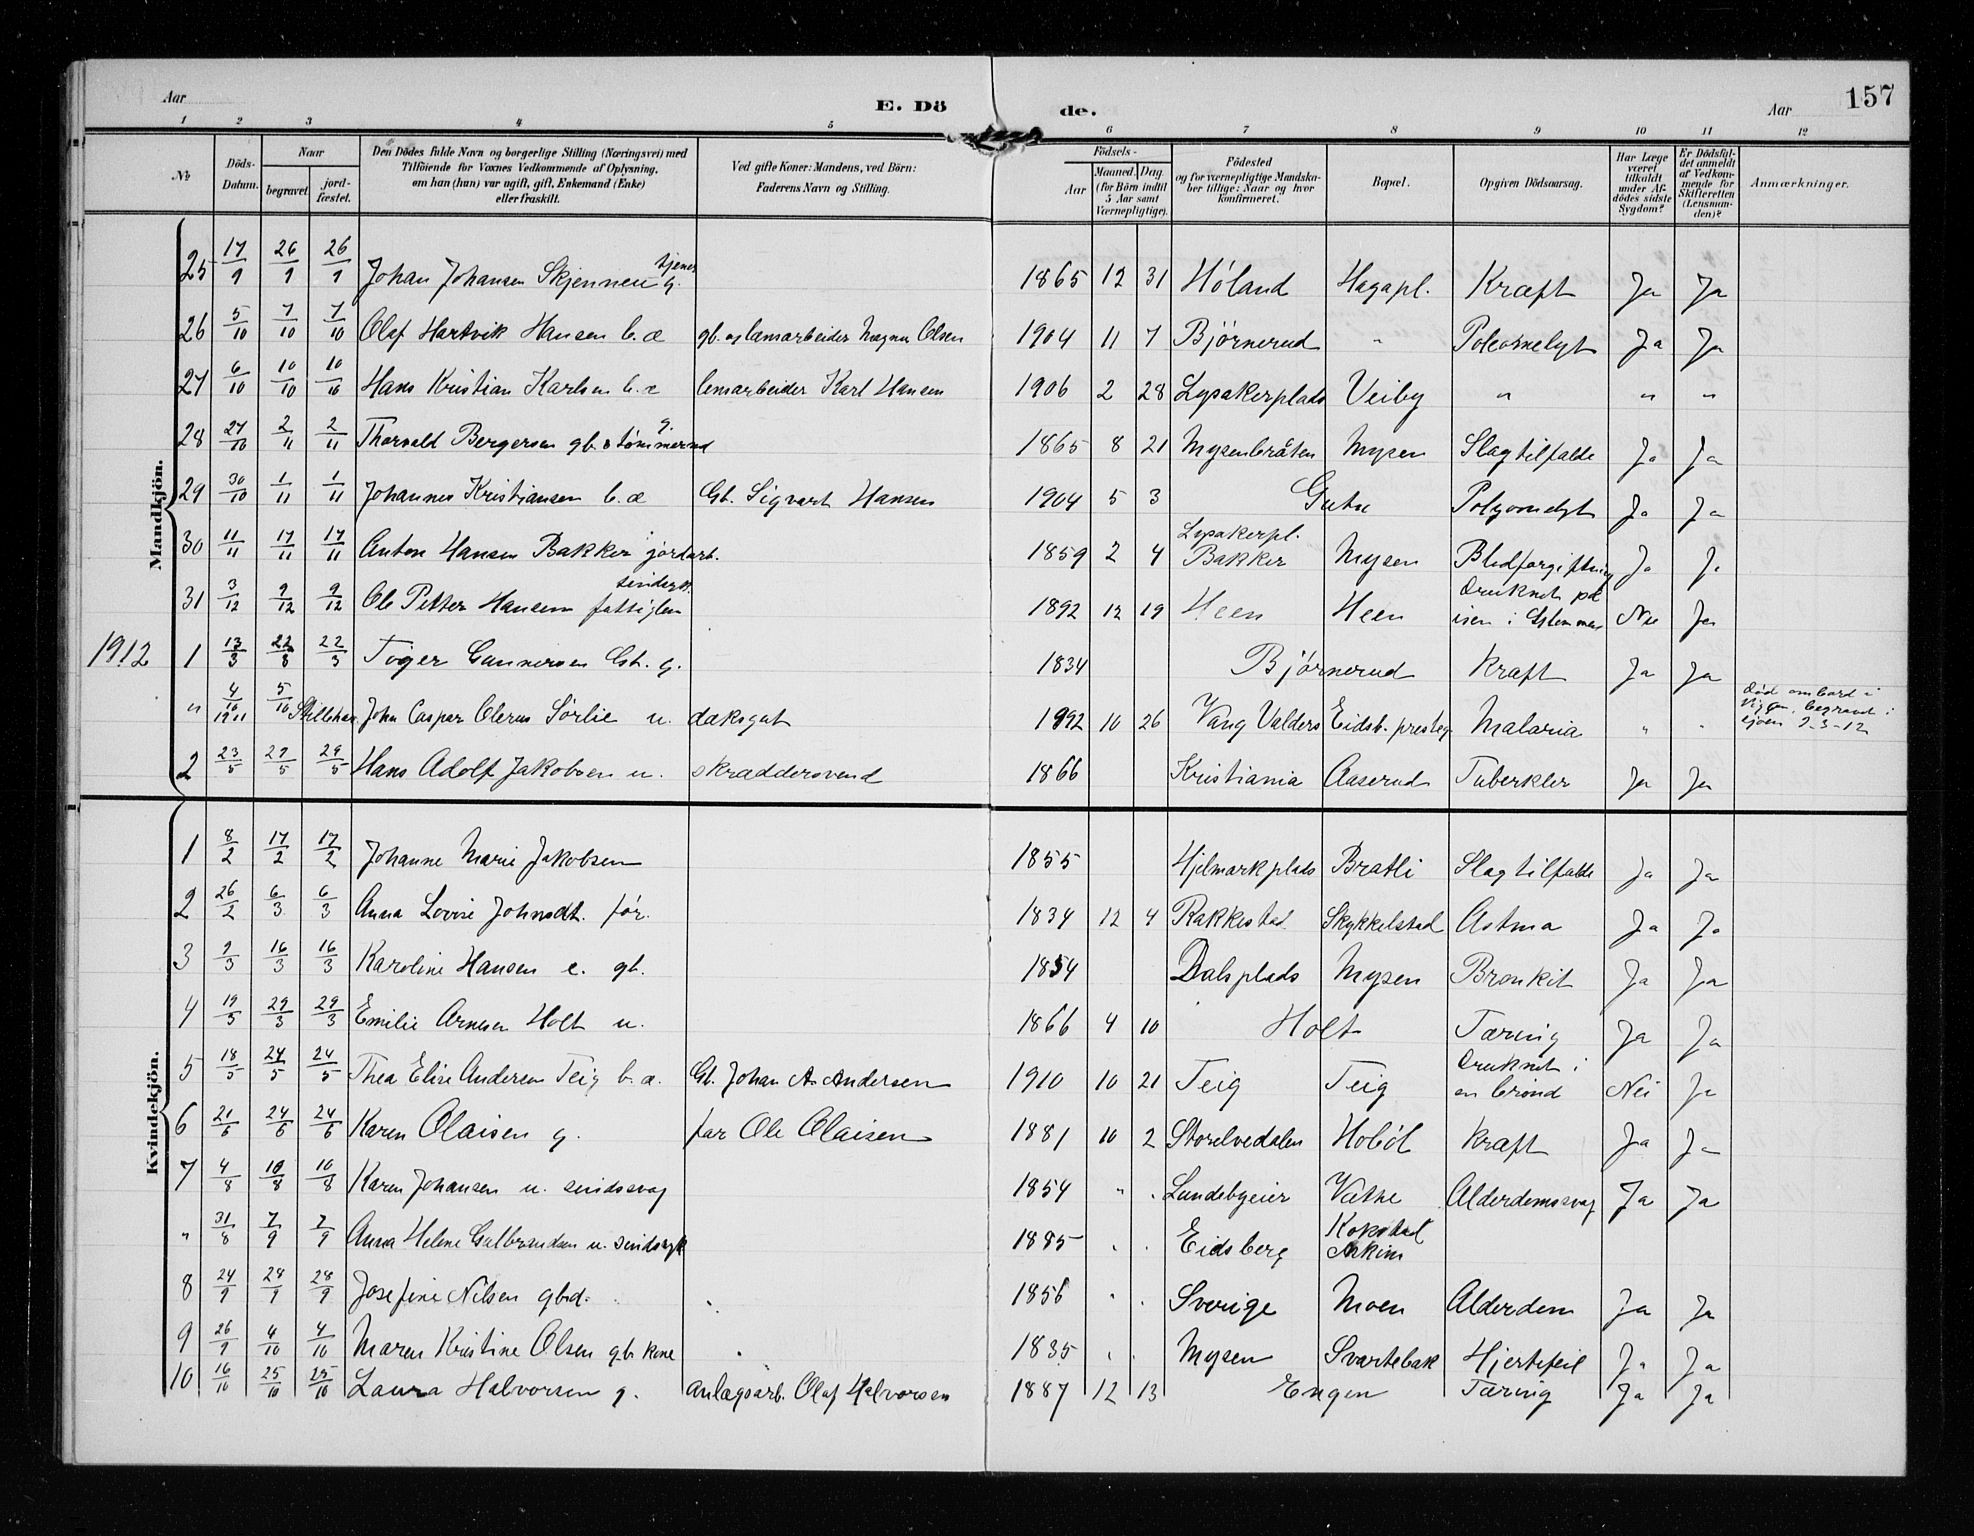 Aar
E. Dö
de.
Aar
157
1 2 3 4 5 6 7 8 9 10 11 12
No
Döds-Datum.
Naar
begravet.
jord-fæstet.
Den Dödes fulde Navn og borgerlige Stilling (Næringsvei) med
Tilföiende for Voxnes Vedkommende af Oplysning,
om han (hun) var ugift, gift, Enkemand (Enke)
eller fraskilt.
Ved gifte Koner: Mandens, ved Börn:
Faderens Navn og Stilling.
Födsels-
Aar
Maaned. Dag.
(for Börn indtil
5 Aar samt
Værnepligtige).
Födested
og for værnepligtige Mandska-
ber tillige: Naar og hvor
konfirmeret.
Bopæl.
Opgiven Dödsaarsag.
Har Læge
været
tilkaldt
under Af-
dödes sidste
Sygdom?
Er Dödsfal-
det anmeldt
af Vedkom-
mende for
Skifteretten
(Lensman-
den)?
Anmærkninger.
Mandkjön.
25 17/9 26/9 26/9 Johan Johansen Skjennen tjener g. 1865 12 31 Höland Hagapl. Kræft Ja Ja
26 5/10 7/10 7/10 Olaf Hartvik Hansen b. æ gb. og lemarbeider Magnus Olsen 1904 11 7 Björnerud " Ja Ja
27 6/10 10/10 10/10 Hans Kristian Karlsen b. æ lemarbeider Karl Hansen 1906 2 28 Lysakerplads Veiby " " "
28 27/10 2/11 2/11 Thorvald Bergersen gb. & tömmermd g. 1865 8 21 Mysenbråten Mysen Slagtilfælde Ja Ja
29 30/10 1/11 1/11 Johannes Kristiansen b. æ Gb. Sigvart Hansen 1904 5 3 Gutu Ja Ja
30 11/11 17/11 17/11 Anton Hansen Bakker jordarb. 1859 2 4 Lysakerpl. Bakker Mysen Blodforgiftning Ja Ja
31 3/12 9/12 9/12 Ole Petter Hansen fattiglem sindsyk. 1892 12 19 Heen Heen Druknet på isen i Glommen Nei Ja
1912 1 13/3 22/3 22/3 Töger Gunnersen Gb. g. 1834 Björnerud Kræft Ja Ja
" 4/10 1911 5/10 Stillehav. John Caspar Olerus Sörlie u. dæksgut 1892 10 26 Vang Valders Eidsb. presteg Malaria " " Död ombord i begravet i sjöen 2-3-12
2 23/5 29/5 29/5 Hans Adolf Jakobsen u. skræddersvend 1866 Kristiania Aaserud Tuberkler Ja Ja
Kvindekjön.
1 8/2 17/2 17/2 Johanne Marie Jakobsen 1855 Hjelmarkplads Bratli Slagtilfælde Ja Ja
2 26/2 6/3 6/3 Anna Lovise Johnsdt. för. 1834 12 4 Rakkestad Skykkelstad Astma Ja Ja
3 9/3 16/3 16/3 Karoline Hansen e. gb. 1854 Dalsplads Mysen Bronkit Ja Ja
4 19/3 29/3 29/3 Emilie Arnesen Holt u. 1866 4 10 Holt Tæring Ja Ja
5 18/5 24/5 24/5 Thea Elise Andersen Teig b. æ. Gb. Johan A. Andersen 1910 10 21 Teig Teig Druknet i en brönd Nei Ja
6 21/6 24/6 24/6 Karen Olaisen g. far Ole Olaisen 1881 10 2 Storelvedalen Hoböl Kræft Ja Ja
7 4/8 10/8 10/8 Karen Johansen u. sindssvag 1854 " " Lundebyeier Vatne Alderdomssvag Ja Ja
" 31/8 7/9 7/9 Anna Helene Gulbrandsen u. sindssyk 1885 " " Eidsberg Kokstad Askim
8 24/9 28/9 28/9 Josefine Nilsen gbrd. " 1856 " " Sverige Moen Alderdom Ja Ja
9 26/9 4/10 4/10 Maren Kristine Olsen gb. kone " 1835 " " Mysen Svartebæk Hjertefeil Ja Ja
10 16/10 25/10 25/10 Laura Halvorsen g. anlægsarb. Olaf Halvorsen 1887 12 13 Engen Tæring Ja Ja